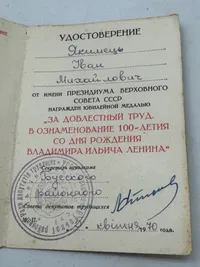 УДОСТОВЕРЕНИЕ
Якимець
Іван
Михайлович
ОТ ИМЕНИ ПРЕЗИДИУМА ВЕРХОВНОГО
СОВЕТА СССР
НАГРАЖДЕН ЮБИЛЕЙНОЙ МЕДАЛЬЮ
„ЗА ДОБЛЕСТНЫЙ ТРУД.
В ОЗНАМЕНОВАНИЕ 100-ЛЕТИЯ
СО ДНЯ РОЖДЕНИЯ
ВЛАДИМИРА ИЛЬИЧА ЛЕНИНА"
Секретарь исполкома
районного
Совета депутатов трудящихся
квітня 1970 года